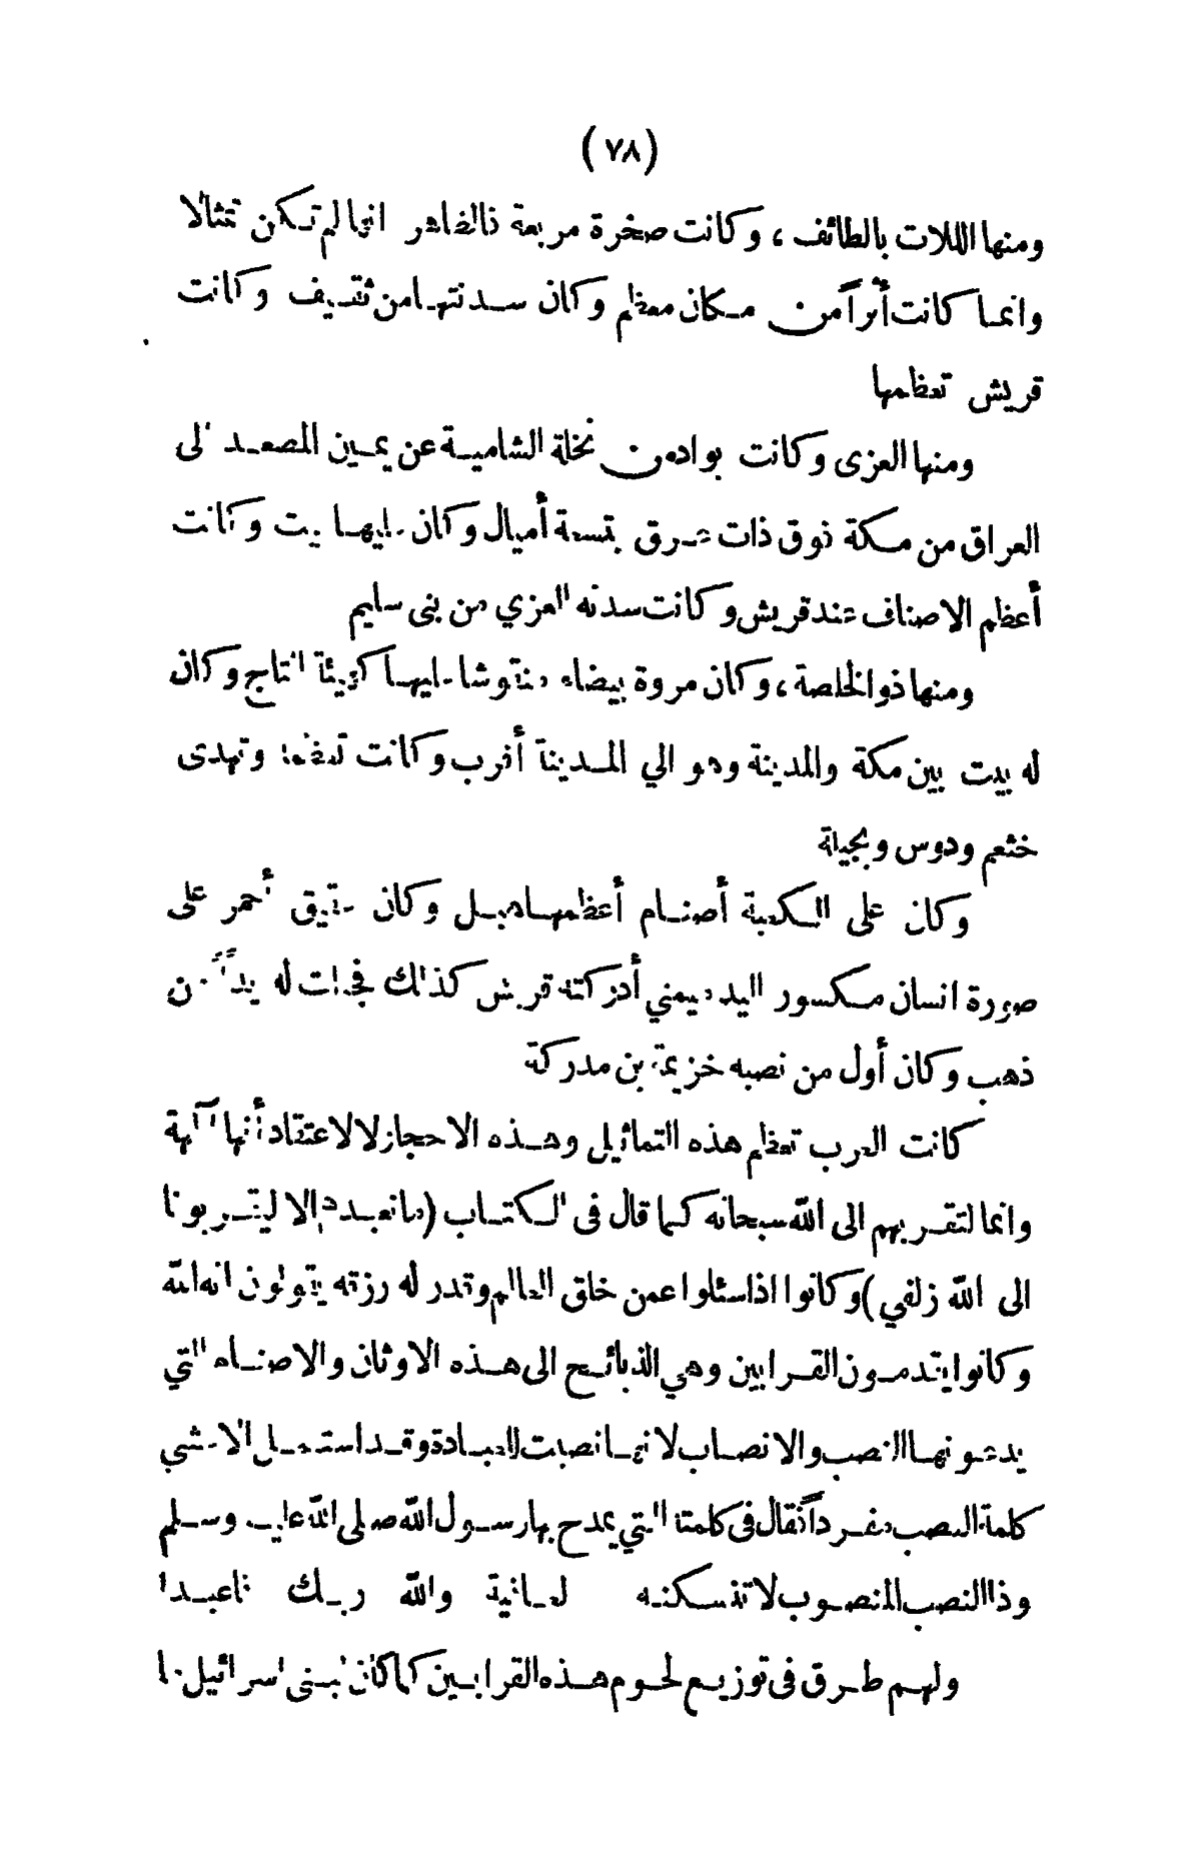 (٧٨)
ومنها اللات بالطائف ، وكانت صخرة مربعة فالظاهر انها لم تكن تمثالا
وانما كانت أثراً من مكان معظم وكان سدنتها من ثقيف وكانت
قريش تعظمها
ومنها العزى وكانت بواد من نخلة الشامية عن يمين المصعد الى
العراق من مكة فوق ذات عرق بتسعة أميال وكان عليها بيت وكانت
أعظم الاصناف عند قريش وكانت سدنه العزي من بنى سليم
ومنها ذو الخلصة ، وكان مروة بيضاء منقوشا عليها كهيئة التاج وكان
له بيت بين مكة والمدينة وهو الي المدينة أقرب وكانت تعظمها وتهدى
خثعم ودوس وبجيلة
وكان على الكعبة أصنام أعظمها هبل وكان عقيق أحمر على
صورة انسان مكسور اليد اليمني أدركته قريش كذلك فجعلت له يداً من
ذهب وكان أول من نصبه خزيمة بن مدركة
كانت العرب تعظم هذه التماثيل وهذه الاحجاز لا لاعتقاد أنها آلهة
وانما لتقربهم الى الله سبحانه كما قال فى الكتاب (مانعبدهم إلا ليقربونا
الى الله زلفي) وكانوا اذا سئلوا عمن خلق العالم وقدر له رزقه يقولون انه الله
وكانوا يقدمون القرابين وهي الذبائح الى هذه الاوثان والاصنام التي
يدعونها النصب والانصاب لانها نصبت للعبادة وقد استعمل الاعشي
كلمة النصب مفرداً فقال فى كلمته التي يمدح بها رسول الله صلى الله عليه وسلم
وذا النصب المنصوب لا تنسكنه لعافية والله ربك فاعبدا
ولهم طرق فى توزيع لحوم هذه القرابين كما كان لبنى اسرائيل